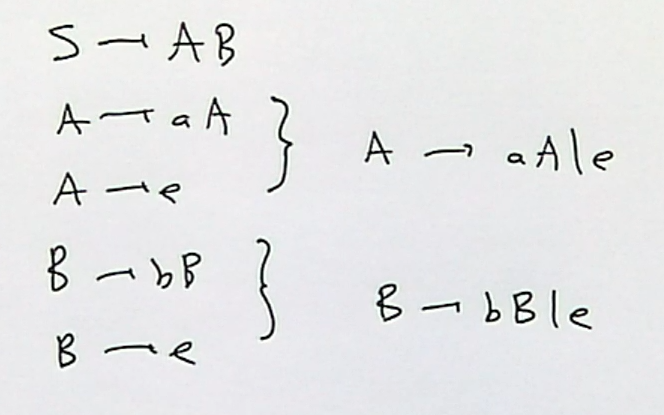 S → AB
A → aA
A → e
A → aA|e
B → bB
B → e
B → bB|e